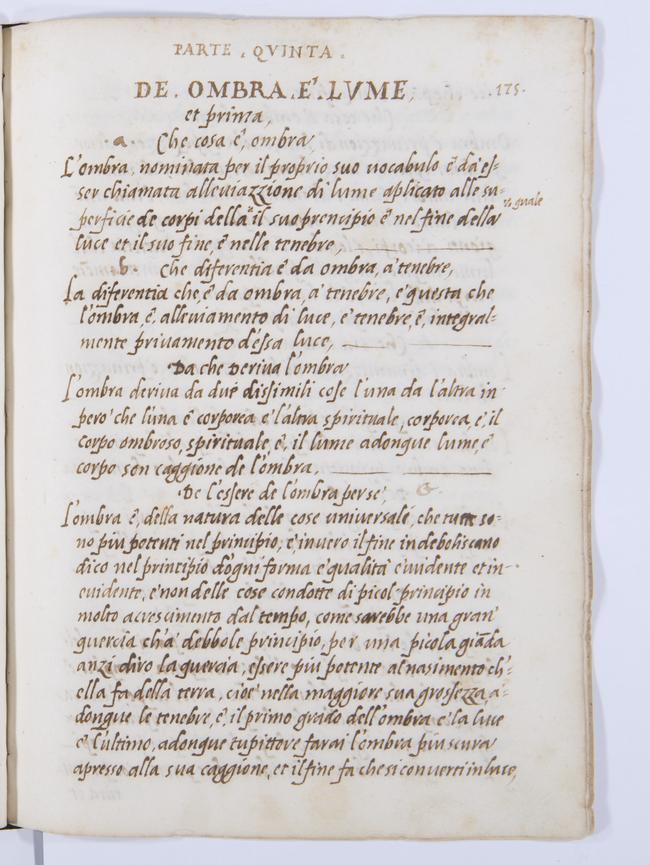 PARTE . QVINTA .
DE . OMBRA . E' . LVME , .175.
et prima ,
a. Che cosa è, ombra,
L'ombra, nominata per il proprio suo vocabulo è da es=
ser chiamata alleviazzione di lume aplicato alle su=
perficie de corpi della il suo prencipio è nel fine della
quale
luce et il suo fine, è nelle tenebre,
b. Che diferentia è da ombra, a' tenebre,
La diferentia che, è da ombra, a' tenebre, e' questa che
l'ombra, è, alleviamento di luce, e' tenebre, è, integral=
mente privamento d'essa luce,
Da che deriva l'ombra
L'ombra deriva da due dissimili cose l'una da l'altra in
pero' che l'una è corporea e' l'altra spirituale, corporea, è, il
corpo ombroso, spirituale, è, il lume adonque lume, e'
corpo son caggione de l'ombra,
De l'essere de l'ombra per se', G.
L'ombra è, della natura delle cose universale, che tutte so=
no piu potenti nel principio, e' invero il fine indeboliscano
dico nel principio d'ogni forma e' qualità evidente et in=
evidente, e' non delle cose condotte di picol principio in
molto acrescimento dal tempo, come sarebbe una gran'
quercia ch'a' debbole principio, per una picola gianda
anzi diro la quercia, essere piu potente al nasimento ch'=
ella fa della terra, cioe' nella maggiore sua grossezza, a=
donque le tenebre, è, il primo grado dell'ombra e' la luce
e' l'ultimo, adonque tu pittore farai l'ombra piu scura
apresso alla sua caggione, et il fine fa che si converti in luce,